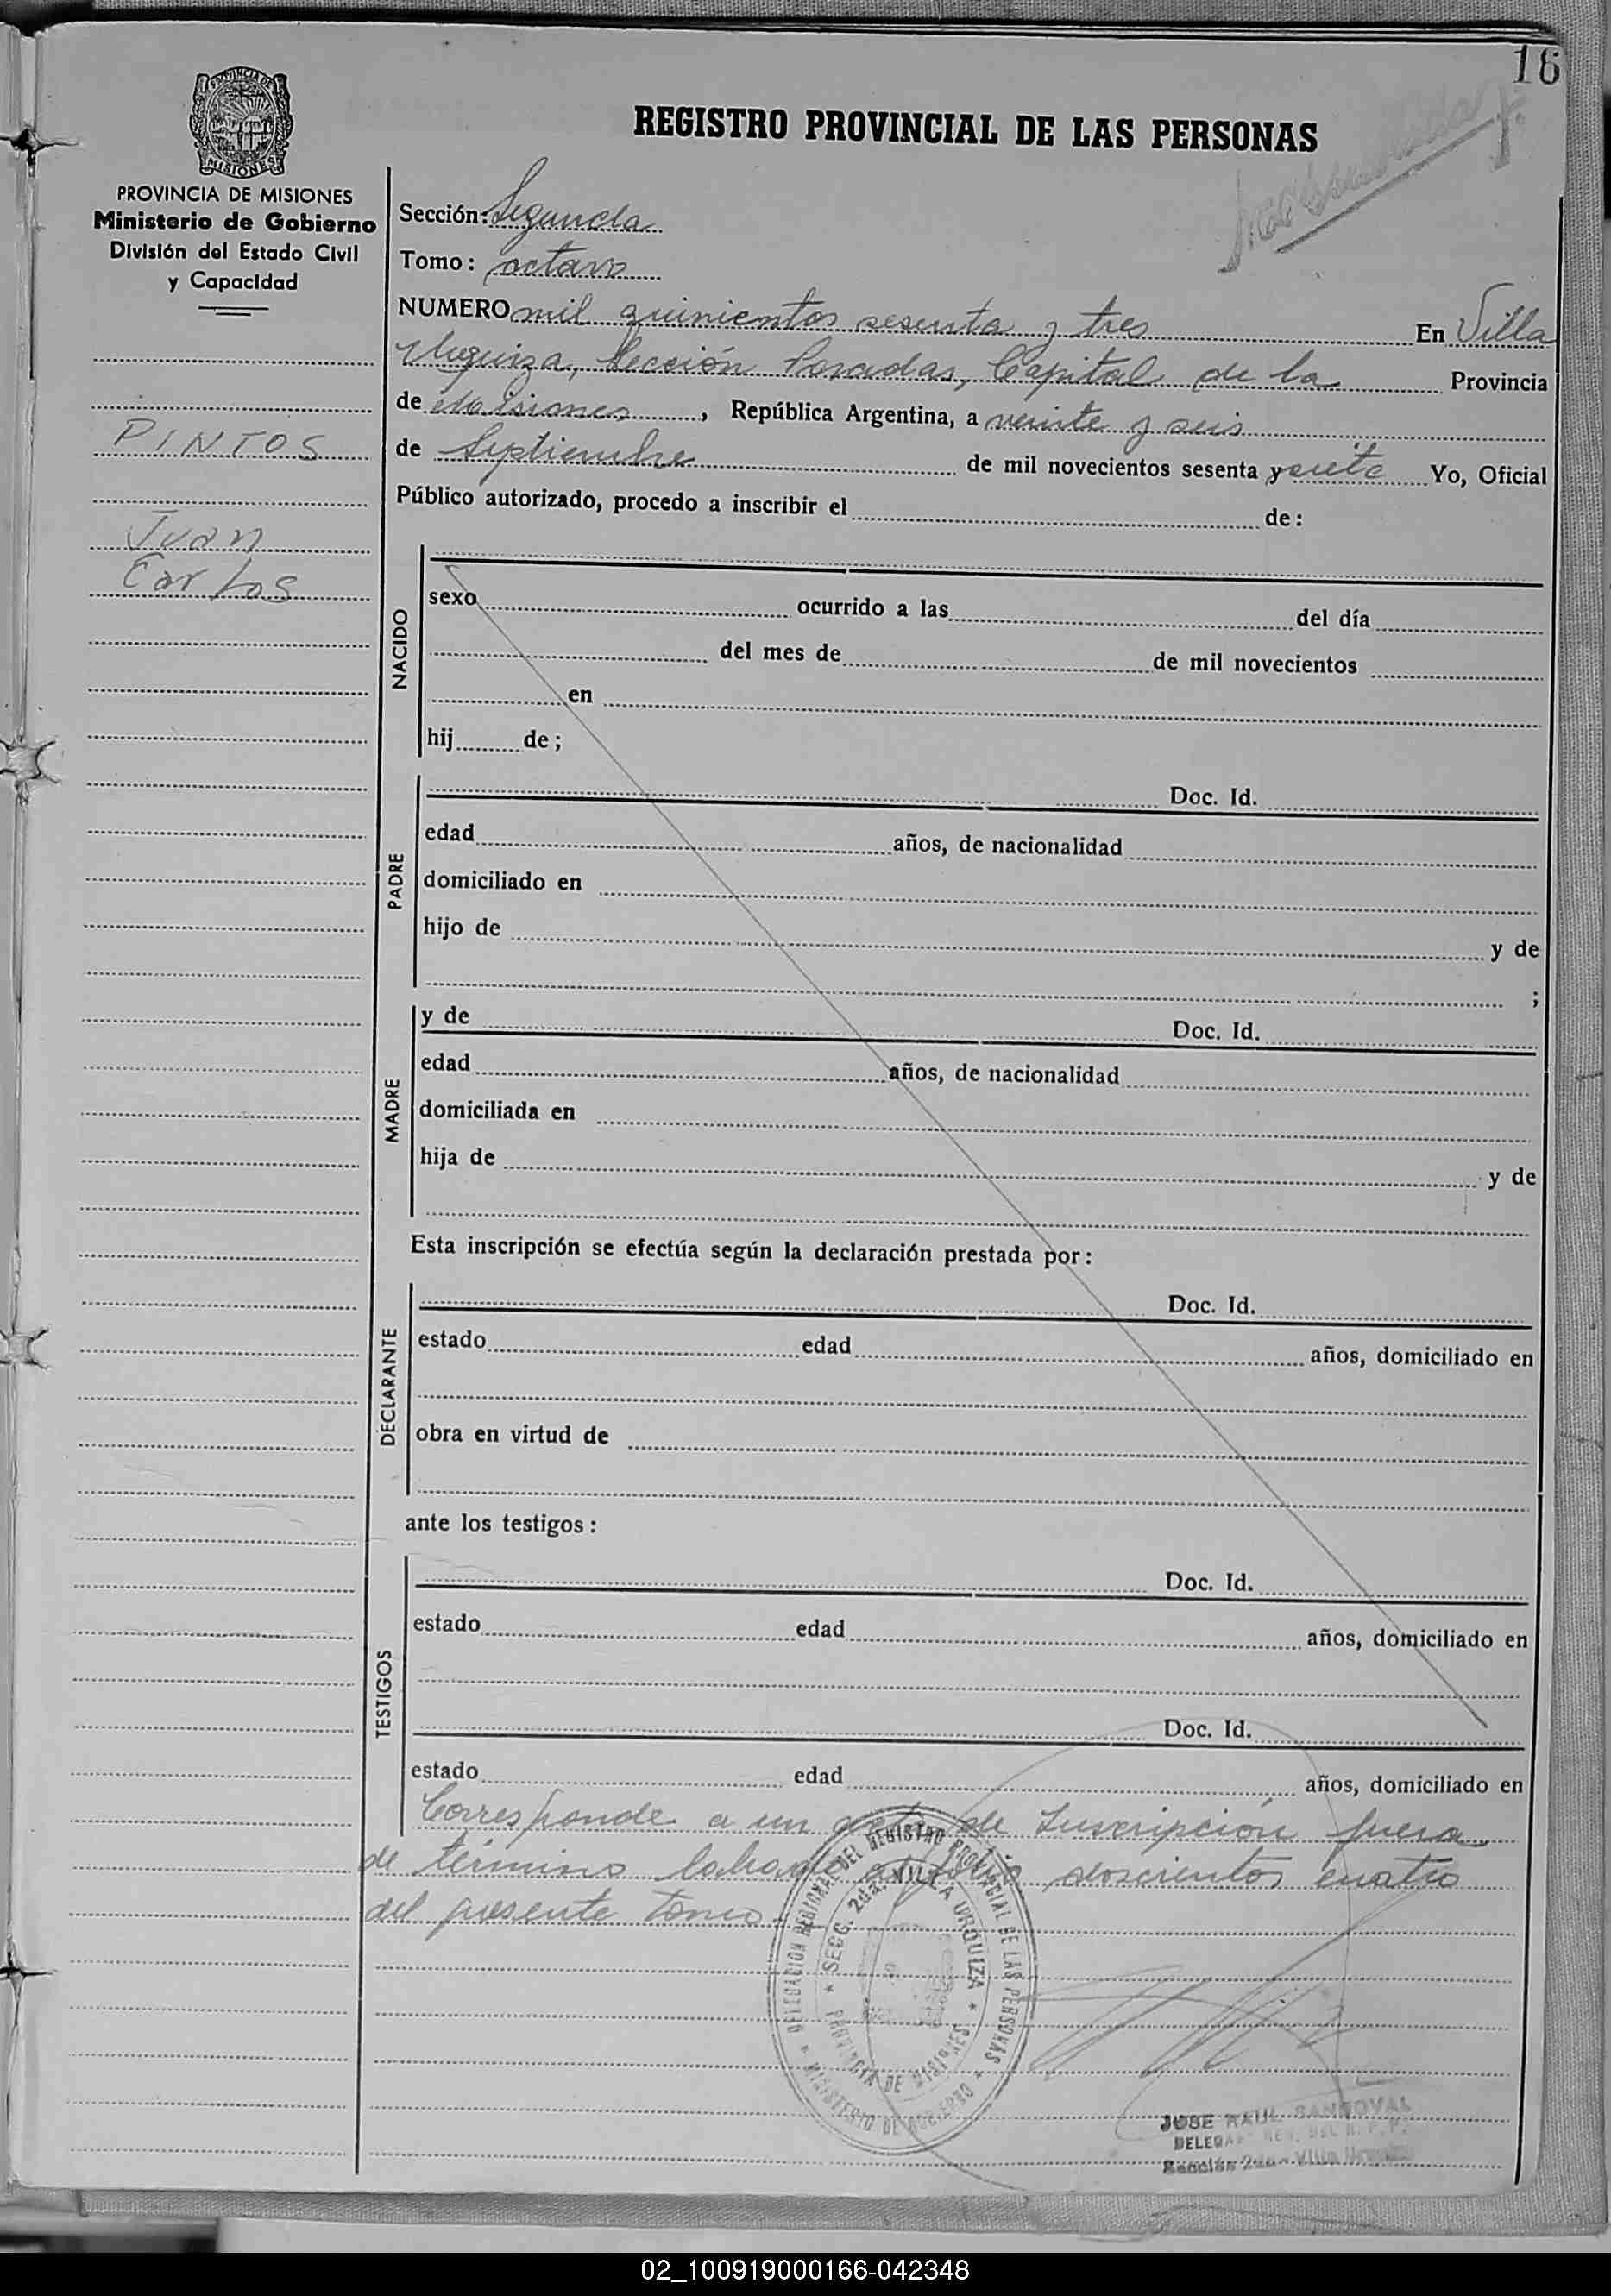 16
REGISTRO PROVINCIAL DE LAS PERSONAS
PROVINCIA DE MISIONES
Ministerio de Gobierno
División del Estado Civil
y Capacidad
PINTOS
Juan
Carlos
Sección: Segunda
Tomo: octavo
NUMERO mil quinientos sesenta y tres En Villa
Urquiza, Sección Posadas, Capital de la Provincia
de Misiones, República Argentina, a veinte y seis
de Septiembre de mil novecientos sesenta y siete Yo, Oficial
Público autorizado, procedo a inscribir el de:
NACIDO
sexo ocurrido a las del día
del mes de de mil novecientos
en
hij de;
PADRE
Doc. Id.
edad años, de nacionalidad
domiciliado en
hijo de y de
;
MADRE
y de Doc. Id.
edad años, de nacionalidad
domiciliada en
hija de y de
Esta inscripción se efectúa según la declaración prestada por:
DECLARANTE
Doc. Id.
estado edad años, domiciliado en
obra en virtud de
ante los testigos:
TESTIGOS
Doc. Id.
estado edad años, domiciliado en
Doc. Id.
estado edad años, domiciliado en
Corresponde a un acta de Inscripción fuera
de término labrado al folio doscientos cuatro
del presente tomo.
DELEGACION REGIONAL DEL REGISTRO PROVINCIAL DE LAS PERSONAS
* MINISTERIO DE GOBIERNO *
* SECC. 2da. VILLA URQUIZA *
PROVINCIA DE MISIONES
JOSE RAUL SANDOVAL
DELEGADO REG. DEL R. P. P.
Sección 2da - Villa Urquiza
02_100919000166-042348